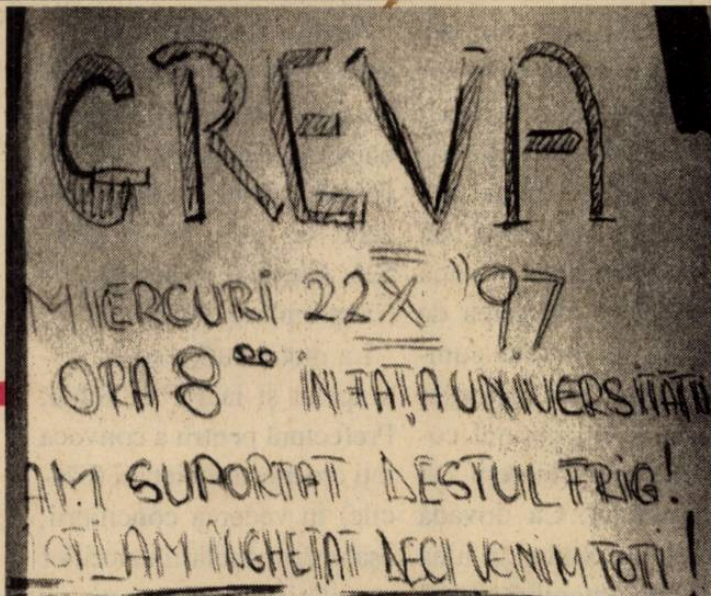 GREVA
MIERCURI 22 X "97
ORA 8⁰⁰ IN FAȚA UNIVERSITĂȚII
AM SUPORTAT DESTUL FRIG!
TOȚI AM ÎNGHEȚAT DECI VENIM TOȚI!